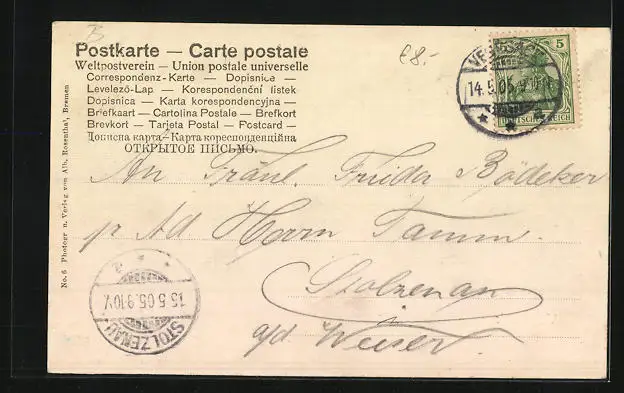 B
Postkarte — Carte postale
Weltpostverein — Union postale universelle
Correspondenz-Karte — Dopisnice —
Levelező-Lap — Korespondenční listek
Dopisnica — Karta korespondencyjna —
Briefkaart — Cartolina Postale — Brefkort
Brevkort — Tarjeta Postal — Postcard —
Цописна карта — Карта кореспонденційна
ОТКРЫТОЕ ПИСЬМО.
€8.-
5
DEUTSCHES REICH
VEGESACK
14.5.05.9-10V.
An Fräul. Frieda Bödeker
pr Ad Herrn Tamm.
Stolzenau
a/d. Weser
STOLZENAU
15.5.05.9-10V.
No. 6 Photogr. u. Verlag von Alb. Rosenthal, Bremen